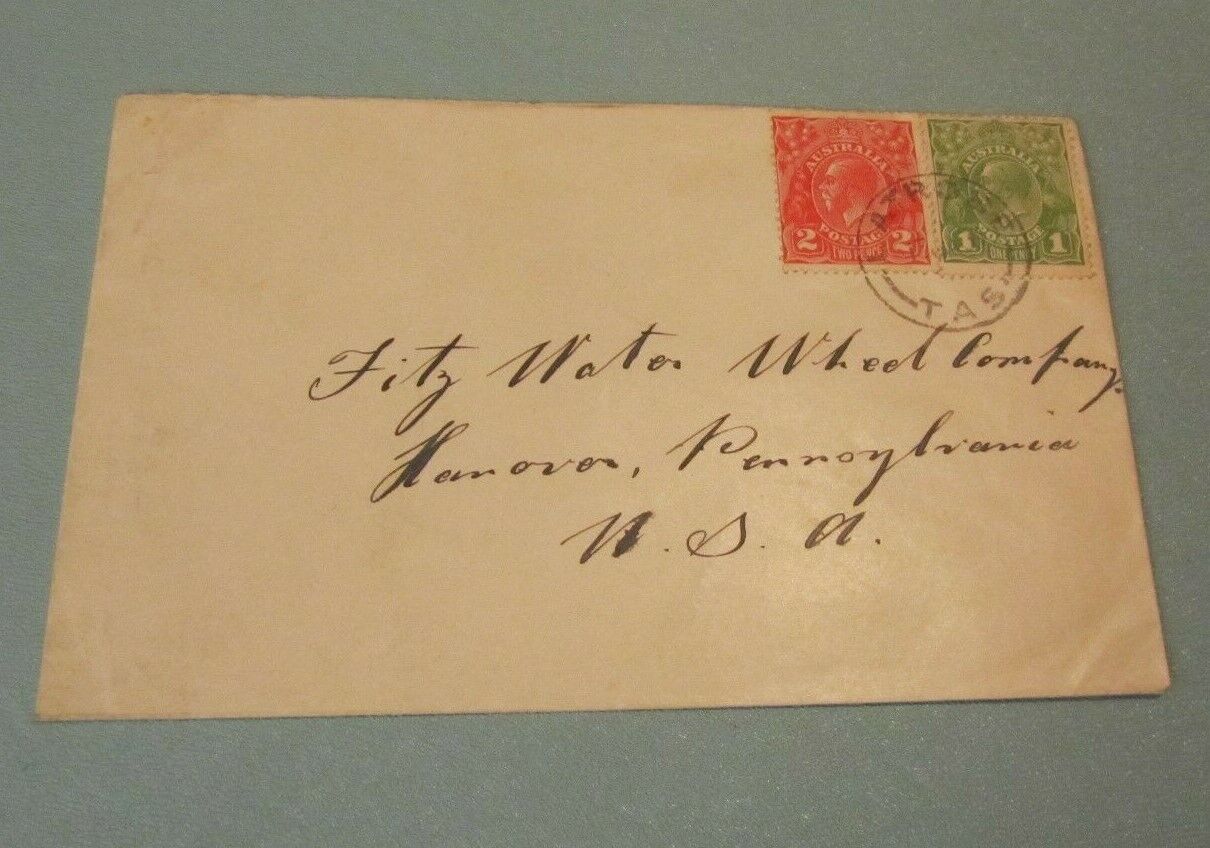 AUSTRALIA
2 POSTAGE 2
TWO PENCE
AUSTRALIA
1 POSTAGE 1
ONE PENNY
TAS
Fitz Water Wheel Company.
Hanover, Pennsylvania
U. S. A.